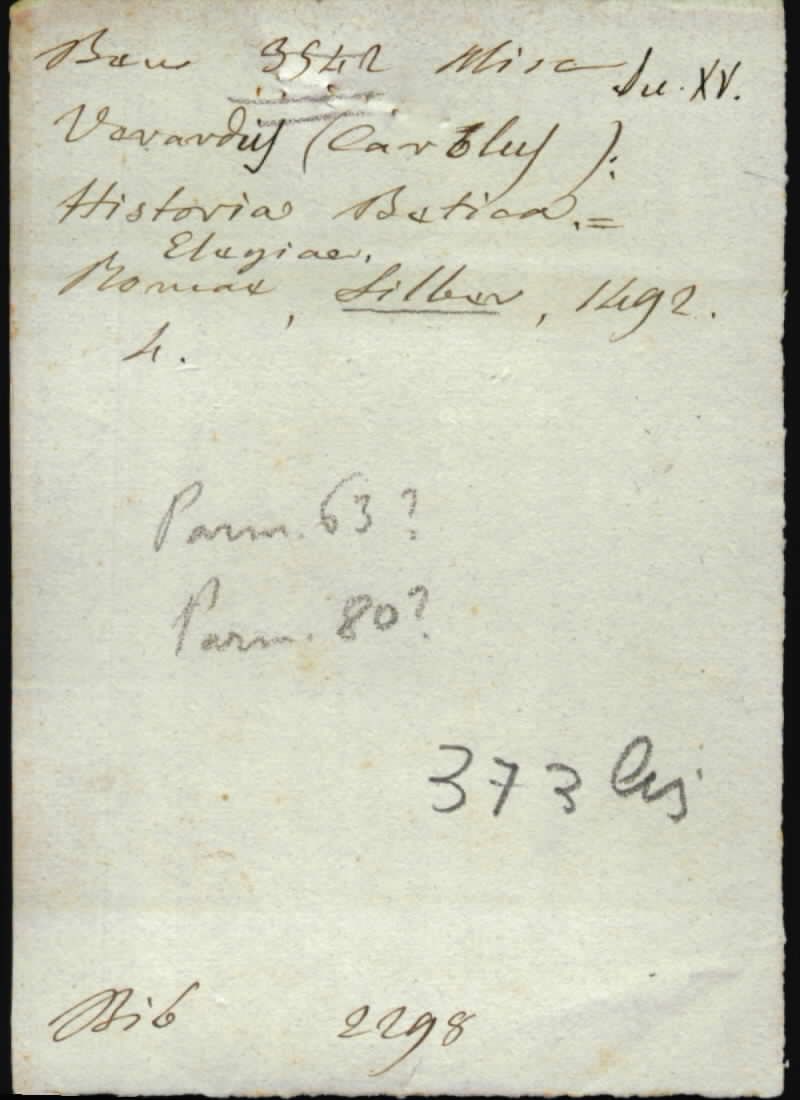 Bau 3542 Misc Sec. XV.
Verardus (Carolus):
Historia Betica. =
Elegiae.
Romae, Silber, 1492.
4.
Parm. 63?
Parm. 80?
373 bis
Bib 2298